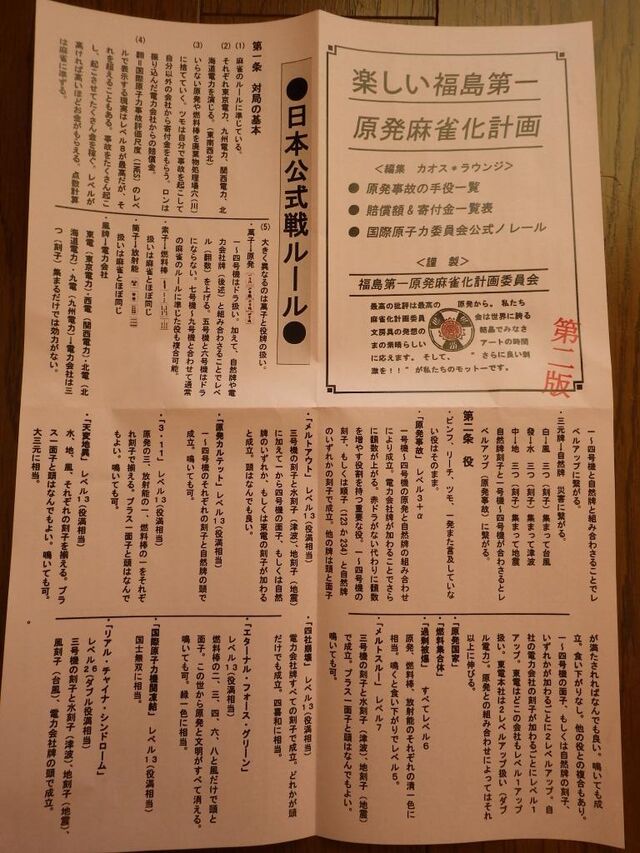 楽しい福島第一
原発麻雀化計画
＜編集 カオス＊ラウンジ＞
● 原発事故の手役一覧
● 賠償額＆寄付金一覧表
● 国際原子力委員会公式ノレール
＜謹 製＞
福島第一原発麻雀化計画委員会
最高の批評は最高の 原発から。私たち
麻雀化計画委員 会は世界に誇る
文房具の発想の 結晶でみなさ
まの素晴らしい アートの時間
に応えます。そして、 " さらに良い刺
激を！！" が私たちのモットーです。
第二版
●日本公式戦ルール●
第一条 対局の基本
(1) 麻雀のルールに準じている。
(2) それぞれ東京電力、九州電力、関西電力、北
海道電力を演じる。（東南西北）
(3) いらない原発や燃料棒を廃棄物処理場穴（川）
に捨てていく。ツモは自分で事故を起こして
自分以外の会社から寄付金をもらう。ロンは
振り込んだ電力会社からの賠償金。
(4) 翻＝国際原子力事故評価尺度（INES）のレベ
ルで表示する現実はレベル８が最高だが、そ
れを超えることもある。事故をたくさん起こ
し、起こさせてたくさん金を稼ぐ。レベルが
高ければ高いほどお金がもらえる。点数計算
は麻雀に準ずる。
(5) 大きく異なるのは萬子と役牌の扱い。
・萬子→原発
一～四号機はドラ扱い。加えて、自然牌や電
力会社牌（後述）と組み合わさることでレベ
ル（翻数）を上げる。五号機と六号機はドラ
にならない。七号機～九号機と合わせて通常
の麻雀のルールに準じた役も複合可能。
・索子→燃料棒
扱いは麻雀とほぼ同じ
・筒子→放射能
扱いは麻雀とほぼ同じ
・風牌→電力会社
東電（東京電力）・西電（関西電力）・北電（北
海道電力）・九電（九州電力）→電力会社は三
つ（刻子）集まるだけでは効力がない。
一～四号機と自然牌と組み合わさることでレ
ベルアップに繋がる。
・三元牌→自然牌 災害に繋がる。
白→風 三つ（刻子）集まって台風
發→水 三つ（刻子）集まって津波
中→地 三つ（刻子）集まって地震
自然牌刻子と一号機～四号機が合わさるとレ
ベルアップ（原発事故）に繋がる。
第二条 役
・ピンフ、リーチ、ツモ、一発また言及していな
い役はそのまま。
・「原発事故」 レベル３＋α
一号機～四号機の原発と自然牌の組み合わせ
により成立。電力会社牌が加わることでさら
に翻数が上がる。赤ドラがない代わりに翻数
を増やす役割を持つ重要な役。一～四号機の
刻子、もしくは順子（123 か 234）と自然牌
のいずれかの刻子で成立。他の牌は頭と面子
が満たされればなんでも良い。鳴いても成
立。食い下がりなし。他の役との複合もあり。
一～四号機の面子、もしくは自然牌の刻子、
いずれかが加わるごとに２レベルアップ。自
社の電力会社の刻子が加わるごとにレベル１
アップ。東電はどこの会社もレベル１アップ
扱い。東電本社は２レベルアップ扱い（ダブ
ル電力）。原発との組み合わせによってはそれ
以上に伸びる。
・「原発国家」
・「燃料集合体」
・「過剰被爆」 すべてレベル６
原発、燃料棒、放射能のそれぞれの清一色に
相当。鳴くと食い下がりでレベル５。
・「メルトスルー」 レベル７
三号機の刻子と水刻子（津波）、地刻子（地震）
で成立。プラス一面子と頭はなんでもよい。
鳴いても可。
・「メルトアウト」 レベル１３（役満相当）
三号機の刻子と水刻子（津波）、地刻子（地震）
に加えて一から四号機の面子、もしくは自然
牌のいずれか、もしくは東電の刻子が加わる
と成立。頭はなんでも良い。
・「原発カルテット」 レベル１３（役満相当）
一～四号機のそれぞれの刻子と自然牌の頭で
成立。鳴いても可。
・「３・１１」 レベル１３（役満相当）
原発の三、放射能の一、燃料棒の一をそれぞ
れ刻子で揃える。プラス一面子と頭はなんで
もよい。鳴いても可。
・「天変地異」 レベル１３（役満相当）
水、地、風、それぞれの刻子を揃える。プラ
ス一面子と頭はなんでもよい。鳴いても可。
大三元に相当。
・「四社崩壊」 レベル１３（役満相当）
電力会社牌すべての刻子で成立。どれかが頭
だけでも成立。四喜和に相当。
・「エターナル フォース・グリーン」
レベル１３（役満相当）
燃料棒の二、三、四、六、八と風だけで頭と
面子。この世から原発と文明がすべて消える。
鳴いても可。緑一色に相当。
・「国際原子力機関凍結」 レベル１３（役満相当）
国士無双に相当。
・「リアル・チャイナ・シンドローム」
レベル２６（ダブル役満相当）
三号機の刻子と水刻子（津波）、地刻子（地震）、
風刻子（台風）、電力会社牌の頭で成立。